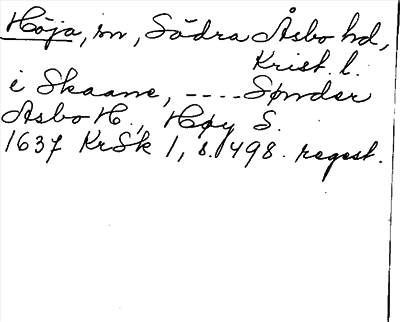 Höja, sn, Södra Åsbo hd,
Krist. l.
i Skaane, ---- Sønder
Asbo H., Høy S.
1637 KrSk 1, s. 498. regest.